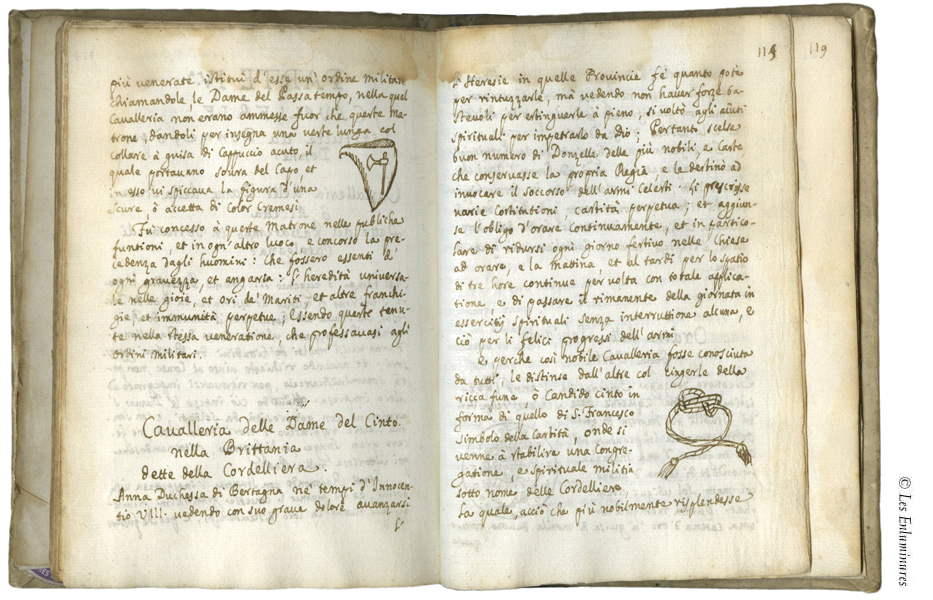 più venerate istituì d'esse un' ordine militare
chiamandole, le Dame del Passatempo, nella quel
Cavalleria non errano ammesse fuor che queste Ma-
trone, dandoli per insegna una veste lunga col
collare à guisa di Cappuccio acuto, il
quale portavano soura del Capo, et
in esso vi spiccaua la figura d'una
scure, ò accetta di color Cremesi
Fù concesso à queste Matrone nelle publiche
funtioni, et in ogn'altro luoco, e concorso la pre-
cedenza dagli huomini: che fossero essenti d'
ogni gravezza, et angaria: L'heredità universa-
le nelle gioie, et ori de' Mariti, et altre franchi-
gie et immunità perpetue; Essendo queste tenu-
te nella stessa veneratione, che professavasi agli
ordini militari.
Cavalleria delle Dame del Cinto
nella Brittania
dette della Cordelliera.
Anna Duchessa di Bertagna ne' tempi d'Innocen-
tio VIII. vedendo con suo grave dolore avanzarsi
l'
114
119
l'Heresie in quelle Provincie fè quanto potè
per rintuzzarle, mà vedendo non haver forze ba-
stevoli per estinguerle à pieno, si voltò agli aiuti
spirituali per impetrarlo da Dio; Pertanto scelse
buon numero di Donzelle delle più nobili, e Caste
che conservasse la propria Regia, e le destinò ad
invocare il soccorso dell'armi Celesti: li prescrisse
varie Costitutioni, castità perpetua; et aggiun-
se l'obligo d'orare continuamente, et in partico-
lare di ridursi ogni giorno festivo nelle Chiese
ad orare, e la mattina, et al tardi per lo spatio
di tre hore continue per volta con totale applica-
tione, e di passare il rimanente della giornata in
essercitij spirituali senza interruttione alcuna, e
ciò per li felici progressi dell'armi
e, perche così nobile Cavalleria fosse conosciuta
da tutti, le distinse dall'altre col cingerle della
ricca fune, ò candido cinto in
forma di quello di S. Francesco
simbolo della Castità, onde si
venne à stabilire una Congre-
gatione, e spirituale militia
sotto nome delle Cordelliere,
La quale, acciò che più nobilmente risplendesse
© Les Enluminures